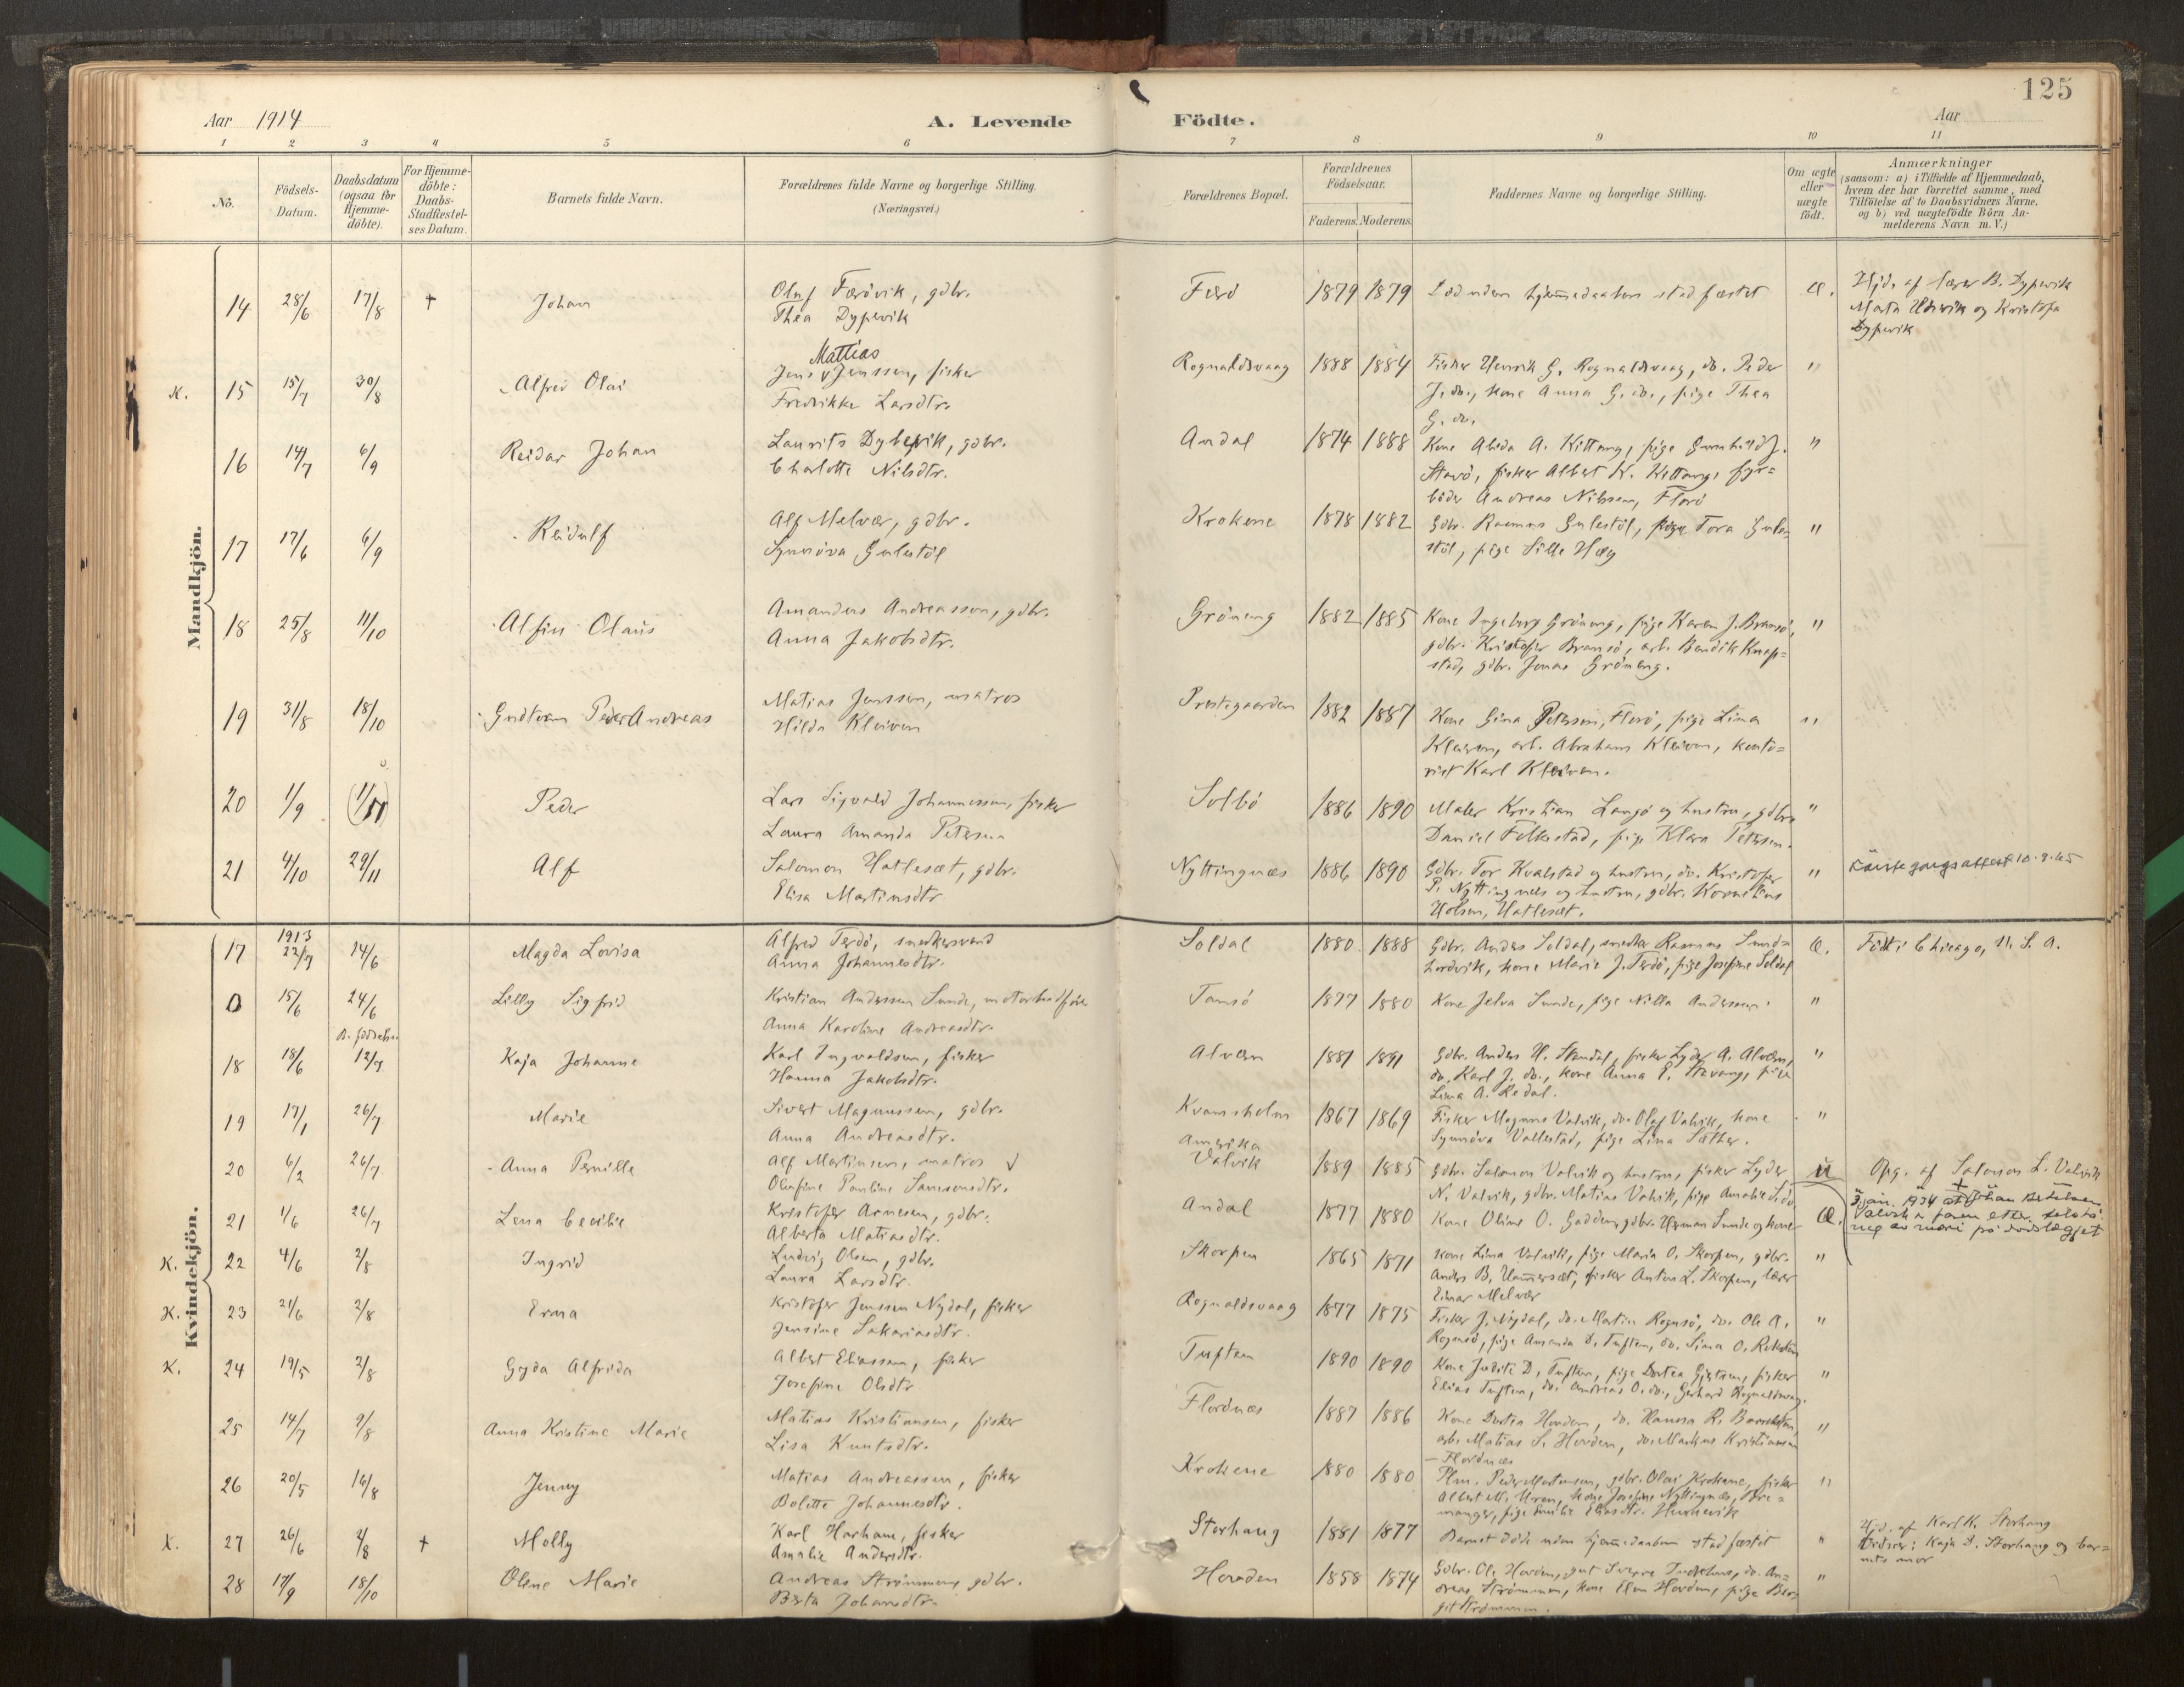 125
Aar 1914
A. Levende Födte.
Aar
1 2 3 4 5 6 7 8 9 10 11
No.
Födsels-Datum.
Daabsdatum (ogsaa for Hjemme-döbte).
For Hjemme-döbte: Daabs-Stadfæstel-ses Datum.
Barnets fulde Navn.
Forældrenes fulde Navne og borgerlige Stilling. (Næringsvei.)
Forældrenes Bopæl.
Forældrenes Födselsaar.
Faderens. Moderens.
Faddernes Navne og borgerlige Stilling.
Om ægte eller uægte födt.
Anmærkninger (saasom: a) i Tilfælde af Hjemmedaab, hvem der har forrettet samme, med Tilföielse af to Daabsvidners Navne, og b) ved uægtefödte Börn An-melderens Navn m. V.)
Mandkjön.
14 28/6 17/8 + Johan
Oluf Færövik, gdbr.
Thea Dypevik
Færö 1879 1879
Död uden hjemmedaaben stadfæstet
Æ.
Hjd. af lærer B. Dypevik
Marta Husevik og Kristofa
Dypevik
K. 15 15/7 30/8 Alfred Olai
Mattias
Jens Jenssen, fisker
Fredrikke Larsdtr.
Rognaldsvaag 1888 1884
Fisker Henrik G. Rognaldsvaag, do. Peder
J. do., kone Anna G. do., pige Thea
G. do.
"
16 14/7 6/9 Reidar Johan
Laurits Dybevik, gdbr.
Charlotte Nilsdtr.
Andal 1874 1888
Kone Alida A. Kittang, pige Gunhild J.
Stavö, fisker Albert K. Kittang, fyr=
böder Andreas Nilssen, Florö
"
17 17/6 6/9 Reidulf
Alf Melvær, gdbr.
Synnöva Gulestöl
Krokene 1878 1882
Gdbr. Rasmus Gulestöl, pige Tora Gule=
stöl, pige Sille Hæg
"
18 25/8 11/10 Alfin Olaus
Amandus Andreassen, gdbr.
Anna Jakobsdtr.
Gröneng 1882 1885
Kone Ingeborg Gröneng, pige Karen J. Bransö,
gdbr. Kristofer Bransö, arb. Bendik Knap=
stad, gdbr. Jonas Gröneng.
"
19 31/8 18/10 Gudtvan Peder Andreas
Matias Jenssen, matros
Hilda Kleiven
Prestegaarden 1882 1887
Kone Gina Petersen, Florö, pige Lina
Kleiven, arb. Abraham Kleiven, konto=
rist Karl Kleiven.
"
20 1/9 (1/11) Peder
Lars Sigvald Johannessen, fisker
Laura Amanda Petersen
Solbö 1886 1890
Maler Kristian Langö og hustru, gdbr.
Daniel Felkestad, pige Klara Petersen.
"
21 4/10 29/11 Alf
Salomon Hatleset, gdbr.
Elisa Martinsdtr.
Nyttingnæs 1886 1890
Gdbr. Tor Kvalstad og hustru, do. Kristofer
P. Nyttingnæs og hustru, gdbr. Kornelius
Holsen, Hatleset.
"
10.9.45
Kvindekjön.
1913
17 22/7 14/6 Magda Lovisa
Alfred Terdö, snedkersvend
Anna Johannesdtr.
Soldal 1880 1888
Gdbr. Anders Soldal, snedker Rasmus Sund=
hordvik, kone Marie J. Terdö, pige Josefine Soldal
Æ.
Födt i Chicago, U. S. A.
0 15/6 24/6 Lilly Sigfrid
Kristian Anderssen Sunde, motorbaadförer
Anna Karoline Andreasdtr.
Tansö 1877 1880
Kone Jelva Sunde, pige Nilla Anderssen.
"
18 18/6 12/7 Kaja Johanne
Karl Ingvaldsen, fisker
Hanna Jakobsdtr.
Alvæn 1881 1891
Gdbr. Anders H. Standal, fisker Lyder A. Alvæn,
do. Karl J. do., kone Anna E. Stavang, pige
Lina A. Redal.
"
19 17/1 26/7 Marie
Sivert Magnussen, gdbr.
Anna Andreasdtr.
Kvamsholm 1867 1869
Fisker Magnus Valvik, do. Olaf Valvik, kone
Synnöva Vallestad, pige Lina Sæther.
"
20 6/2 26/7 Anna Pernille
Alf Martinsen, matros
Olufine Pauline Samsonsdtr.
Amerika
Valvik 1889 1885
Gdbr. Salomon Valvik og hustru, fisker Lyder
N. Valvik, gdbr. Matias Valvik, pige Amalie
U
Opg. af Salomon L. Valvik
21 1/6 26/7 Lena Cecilie
Kristofer Arnesen, gdbr.
Alberta Matiasdtr.
Andal 1877 1880
Kone Oline O. Gadden, gdbr. Herman Sunde og kone
Æ.
K. 22 4/6 2/8 Ingrid
Ludvig Olsen, gdbr.
Laura Larsdtr.
Skorpen 1865 1871
Kone Lina Valvik, pige Maria O. Skorpen, gdbr.
Anders B. Hammerset, fisker Anton L. Skorpen, lærer
Einar Melvær
"
K. 23 21/6 2/8 Erna
Kristofer Jenssen Nydal, fisker
Jensine Sakariasdtr.
Rognaldsvaag 1877 1875
Fisker J. Nydal, do. Martin Rognsö, do. Ole A.
Rognsö, pige Amanda D. Tuften, do. Lina O. Roksten
"
K. 24 19/5 2/8 Gyda Alfrida
Albert Eliassen, fisker
Josefine Olsdtr
Tuften 1890 1890
Kone Judita D. Tuften, pige Dortea Gjertsen, fisker
Elias Tuften, do. Andreas O. do., Gerhard Rognaldsvaag.
"
25 14/7 9/8 Anna Kristine Marie
Matias Kristiansen, fisker
Lisa Knutsdtr.
Florönæs 1887 1886
Kone Dortea Hovden, do. Hanna R.
arb. Matias S. Hovden, do. Markus Kristiansen
— Florönæs
"
26 20/5 16/8 Jenny
Matias Andreassen, fisker
Bolette Johannesdtr.
Krokene 1880 1880
Plm. Peder Mortensen, gdbr. Olai Krokene, fisker
Albert M. Uren, kone Josefine Nyttingnæs, Bre=
manger, pige Emilie Eliasdtr. Husevik
"
K. 27 26/6 2/8 + Molly
Karl Harham, fisker
Amalie Andersdtr.
Storhaug 1881 1877
Barnet döde uden hjemmedaaben stadfæstet
"
Hjd. af Karl K. Storhaug
Vidner: Kaja D. Storhaug og bar=
nets mor
28 17/9 18/10 Olene Marie
Andreas Strömmen, gdbr.
Berta Johansdtr.
Hovden 1858 1874
Gdbr. Ole Hovden, gut Sverre Indrehus, do. An=
dreas Strömmen, kone Elen Hovden, pige Ber=
git Strömmen.
"